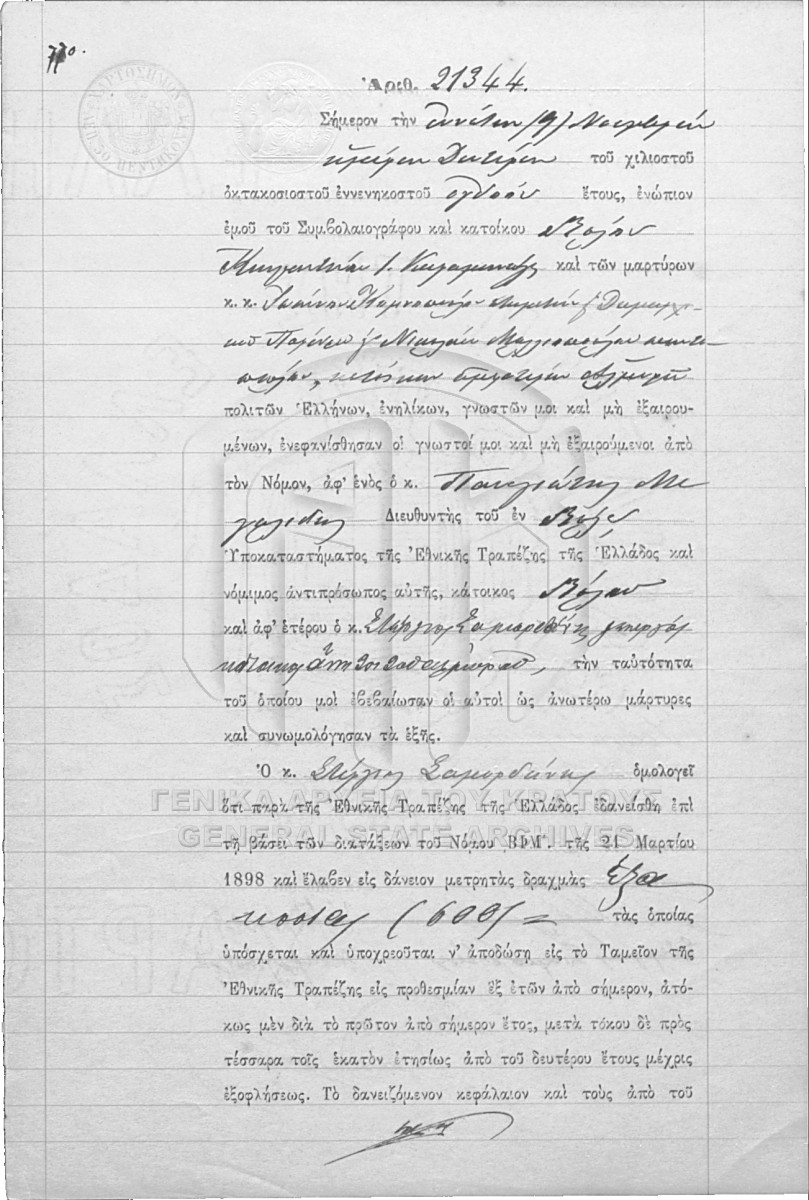 770.
Ἀριθ. 21344.
Σήμερον τὴν ἐννάτην (9) Νοεμβρίου
ἡμέραν Δευτέραν τοῦ χιλιοστοῦ
ὀκτακοσιοστοῦ ἐννενηκοστοῦ ὀγδόου ἔτους, ἐνώπιον
ἐμοῦ τοῦ Συμβολαιογράφου καὶ κατοίκου Βόλου
καὶ τῶν μαρτύρων
κ. κ. Ἰωάννου
Νικολάου
κατοίκων
πολιτῶν Ἑλλήνων, ἐνηλίκων, γνωστῶν μοι καὶ μὴ ἐξαιρου-
μένων, ἐνεφανίσθησαν οἱ γνωστοί μοι καὶ μὴ ἐξαιρούμενοι ἀπὸ
τὸν Νόμον, ἀφ' ἑνὸς ὁ κ. Παναγιώτης Με
γαλίδης Διευθυντὴς τοῦ ἐν Βόλῳ
Ὑποκαταστήματος τῆς Ἐθνικῆς Τραπέζης τῆς Ἑλλάδος καὶ
νόμιμος ἀντιπρόσωπος αὐτῆς, κάτοικος Βόλου
καὶ ἀφ' ἑτέρου ὁ κ. Στέργιος Σαμορδάνης γεωργὸς
κάτοικος τὴν ταὐτότητα
τοῦ ὁποίου μοὶ ἐβεβαίωσαν οἱ αὐτοὶ ὡς ἀνωτέρω μάρτυρες
καὶ συνωμολόγησαν τὰ ἑξῆς.
Ὁ κ. Στέργιος Σαμορδάνης ὁμολογεῖ
ΓΕΝΙΚΑ ΑΡΧΕΙΑ ΤΟΥ ΚΡΑΤΟΥΣ
ὅτι παρὰ τῆς Ἐθνικῆς Τραπέζης τῆς Ἑλλάδος ἐδανείσθη ἐπὶ
GENERAL STATE ARCHIVES
τῇ βάσει τῶν διατάξεων τοῦ Νόμου ΒΦΜʹ. τῆς 21 Μαρτίου
1898 καὶ ἔλαβεν εἰς δάνειον μετρητὰς δραχμὰς ἑξα
κοσίας (600) = τὰς ὁποίας
ὑπόσχεται καὶ ὑποχρεοῦται ν' ἀποδώσῃ εἰς τὸ Ταμεῖον τῆς
Ἐθνικῆς Τραπέζης εἰς προθεσμίαν ἓξ ἐτῶν ἀπὸ σήμερον, ἀτό-
κως μὲν διὰ τὸ πρῶτον ἀπὸ σήμερον ἔτος, μετὰ τόκου δὲ πρὸς
τέσσαρα τοῖς ἑκατὸν ἐτησίως ἀπὸ τοῦ δευτέρου ἔτους μέχρις
ἐξοφλήσεως. Τὸ δανειζόμενον κεφάλαιον καὶ τοὺς ἀπὸ τοῦ